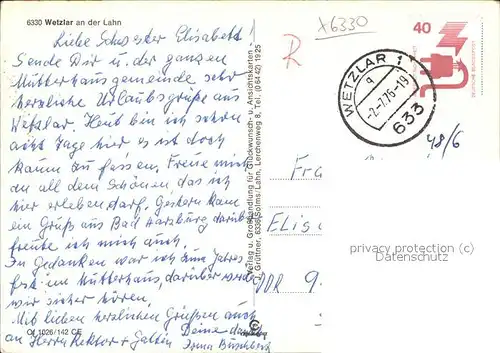 6330 Wetzlar an der Lahn
x6330
Liebe Schwester Elisabeth
Sende Dir u. der ganzen
Mutterhausgemeinde sehr
herzliche Urlaubsgrüße aus
Wetzlar. Heut bin ich schon
acht Tage hier es ist doch
kaum zu fassen. Freue mich
an all dem Schönen, das ich
hier erleben darf. Gestern kam
ein Gruß aus Bad Harzburg darüber
freute ich mich auch.
In Gedanken war ich zum Jahres
fest im Mutterhaus, darüber werde
wir sicher hören.
Mit lieben herzlichen Grüßen auch
an Herrn Rektor + Gattin Deine
Irma
OI 1026/142 CE
Verlag u. Großhandlung für Glückwunsch- u. Ansichtskarten
J. Grüttner, 6336 Solms/Lahn, Lerchenweg 8, Tel. (0 64 42) 19 25
R
WETZLAR 1
a
-2-7.76-19
633
40
DEUTSCHE BUNDESPOST
48/6
Fr
Elis
DDR 9
privacy protection ©
Datenschutz